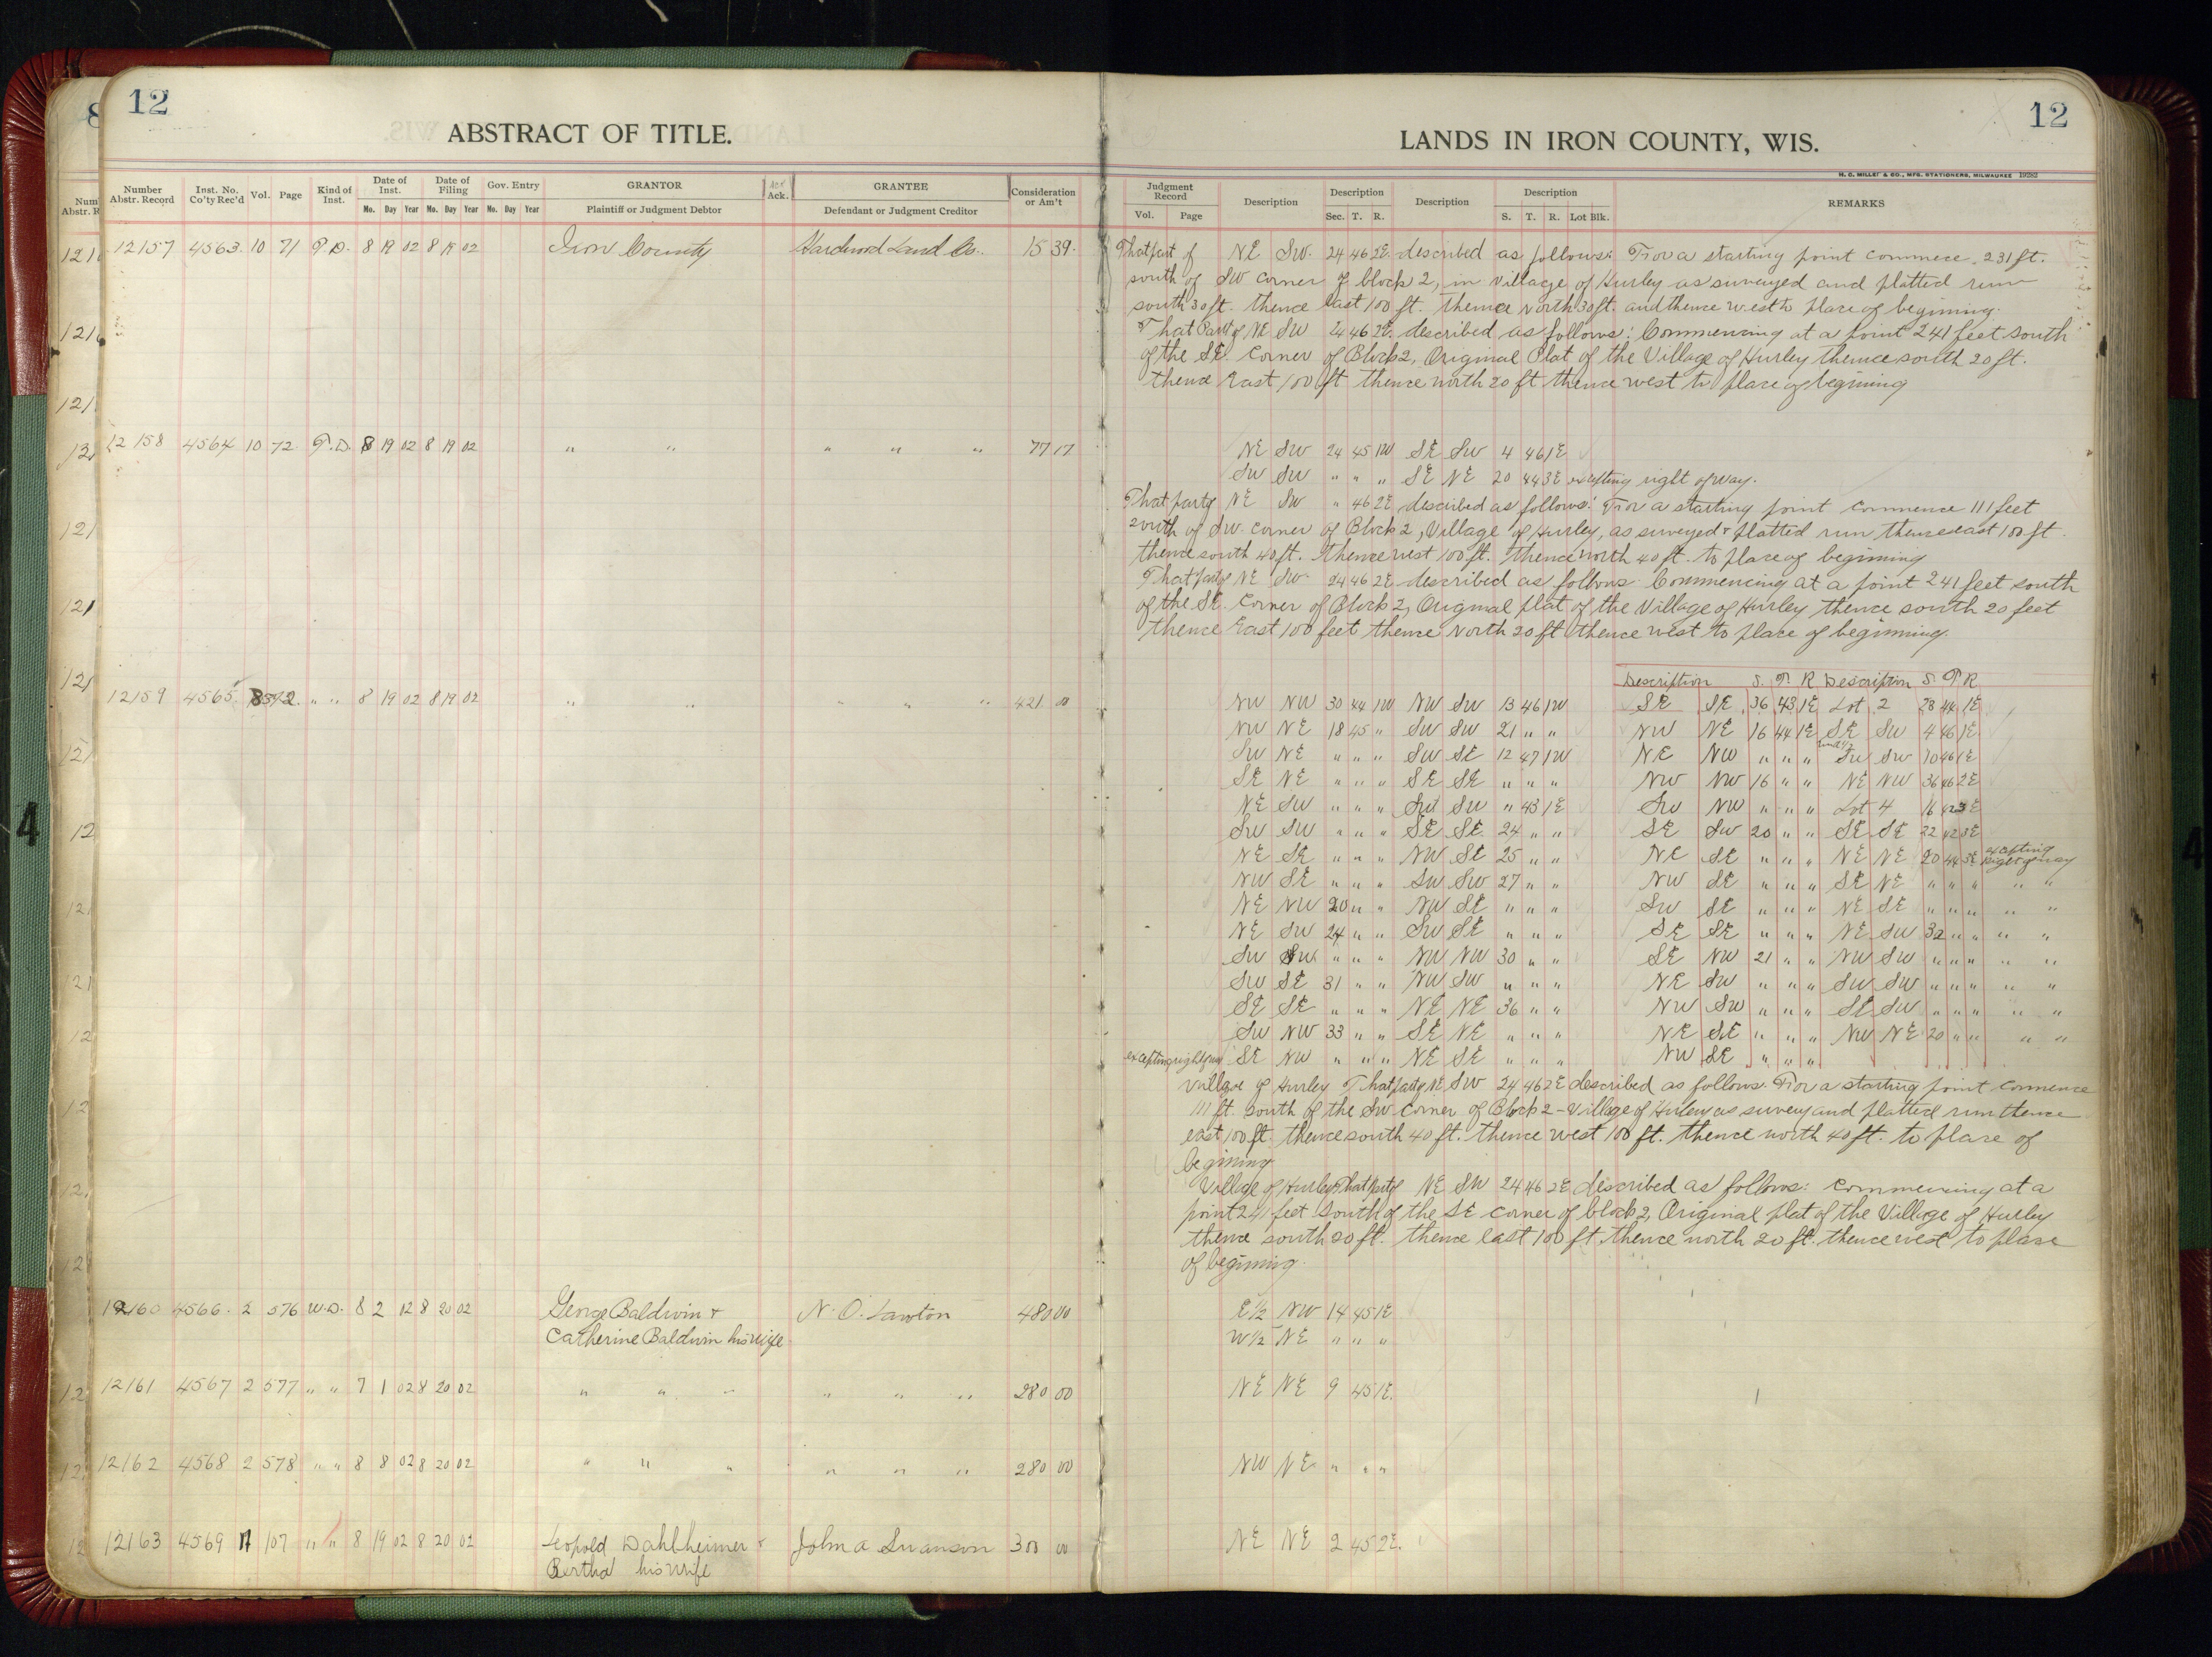 12
ABSTRACT OF TITLE.
Number Abstr. Record Inst. No. Co'ty Rec'd Vol. Page Kind of Inst. Date of Inst. Date of Filing Gov. Entry GRANTOR Ack. GRANTEE Consideration or Am't
Mo. Day Year Mo. Day Year Mo. Day Year Plaintiff or Judgment Debtor Defendant or Judgment Creditor
12157 4563 10 71 T.D. 8 19 02 8 19 02 Iron County Hardwood Land Co. 15 39
12158 4564 10 72 T.D. 8 19 02 8 19 02 " " " " " 77 17
12159 4565 " " 8 19 02 8 19 02 " " " " " 421 00
12160 4566 2 576 W.D. 8 2 02 8 20 02 George Baldwin & N. O. Lawton 480 00
Catherine Baldwin his wife
12161 4567 2 577 " " 7 1 02 8 20 02 " " " " " " 280 00
12162 4568 2 578 " " 8 8 02 8 20 02 " " " " " " 280 00
12163 4569 11 107 " " 8 19 02 8 20 02 Leopold Dahlheimer & John a Swanson 300 00
Bertha his wife
12
LANDS IN IRON COUNTY, WIS.
H. C. MILLER & CO., MFG. STATIONERS, MILWAUKEE
Judgment Record Description Description Description Description REMARKS
Vol. Page Sec. T. R. S. T. R. Lot Blk.
That part of NE SW 24 46 2E described as follows: For a starting point commence 231 ft.
south of SW corner of block 2, in village of Hurley as surveyed and platted run
south 30 ft. thence east 100 ft. thence north 30 ft. and thence west to place of begining.
That Part of NE SW 24 46 2E described as follows: Commencing at a point 241 feet south
of the SE. Corner of Block 2, Original Plat of the Village of Hurley thence south 20 ft.
thence East 100 ft thence north 20 ft thence west to place of begining
NE SW 24 45 1W SE SW 4 46 1E
SW SW " " " SE NE 20 44 3E excepting right of way.
That part of NE SW " 46 2E described as follows: For a starting point commence 111 feet
south of SW. corner of Block 2, Village of Hurley, as surveyed & platted run thence east 100 ft.
thence south 40 ft. thence west 100 ft. thence north 40 ft. to place of begining
That part of NE SW 24 46 2E described as follows Commencing at a point 241 feet south
of the SE. Corner of Block 2, Original plat of the Village of Hurley thence south 20 feet
thence East 100 feet thence North 20 ft thence west to place of beginning.
Description S. T. R Description S. T R
NW NW 30 44 1W NW SW 13 46 1W SE SE 36 43 1E Lot 2 28 44 1E
NW NE 18 45 " SW SW 21 " " NW NE 16 44 1E SE SW 4 46 1E
SW NE " " " SW SE 12 47 1W NE NW " " " SW SW 10 46 1E
SE NE " " " SE SE " " " NW NW 16 " " NE NW 36 46 2E
NE SW " " " SW SW " 43 1E SW NW " " " Lot 4 16 42 3E
SW SW " " " SE SE 24 " " SE SW 20 " " SE SE 32 42 3E
NE SE " " " NW SE 25 " " NE SE " " " NE NE 20 44 3E excepting right of way
NW SE " " " SW SW 27 " " NW SE " " " SE NE " " " " "
NE NW 20 " " NW SE " " " SW SE " " " NE SE " " " " "
NE SW 24 " " SW SE " " " SE SE " " " NE SW 32 " " " "
SW SW " " " NW NW 30 " " SE NW 21 " " NW SW " " " " "
SW SE 31 " " NW SW " " " NE SW " " " SW SW " " " " "
SE SE " " " NE NE 36 " " NW SW " " " SE SW " " " " "
SW NW 33 " " SE NE " " " NE SE " " " NW NE 20 " " " "
excepting right of way SE NW " " " NE SE " " " NW SE " " "
Village of Hurley That part of NE SW 24 46 2E described as follows. For a starting point commence
111 ft. south of the SW corner of Block 2 - Village of Hurley as survey and platted run thence
east 100 ft. thence south 40 ft. thence west 100 ft. thence north 40 ft. to place of
begining
Village of Hurley That part of NE SW 24 46 2E described as follows: commencing at a
point 241 feet South of the SE corner of block 2, Original plat of the Village of Hurley
thence south 20 ft. thence east 100 ft. thence north 20 ft. thence west to place
of begining.
E 1/2 NW 14 45 1E
W 1/2 NE " " "
NE NE 9 45 1E.
NW NE " " "
NE NE 2 45 2E.